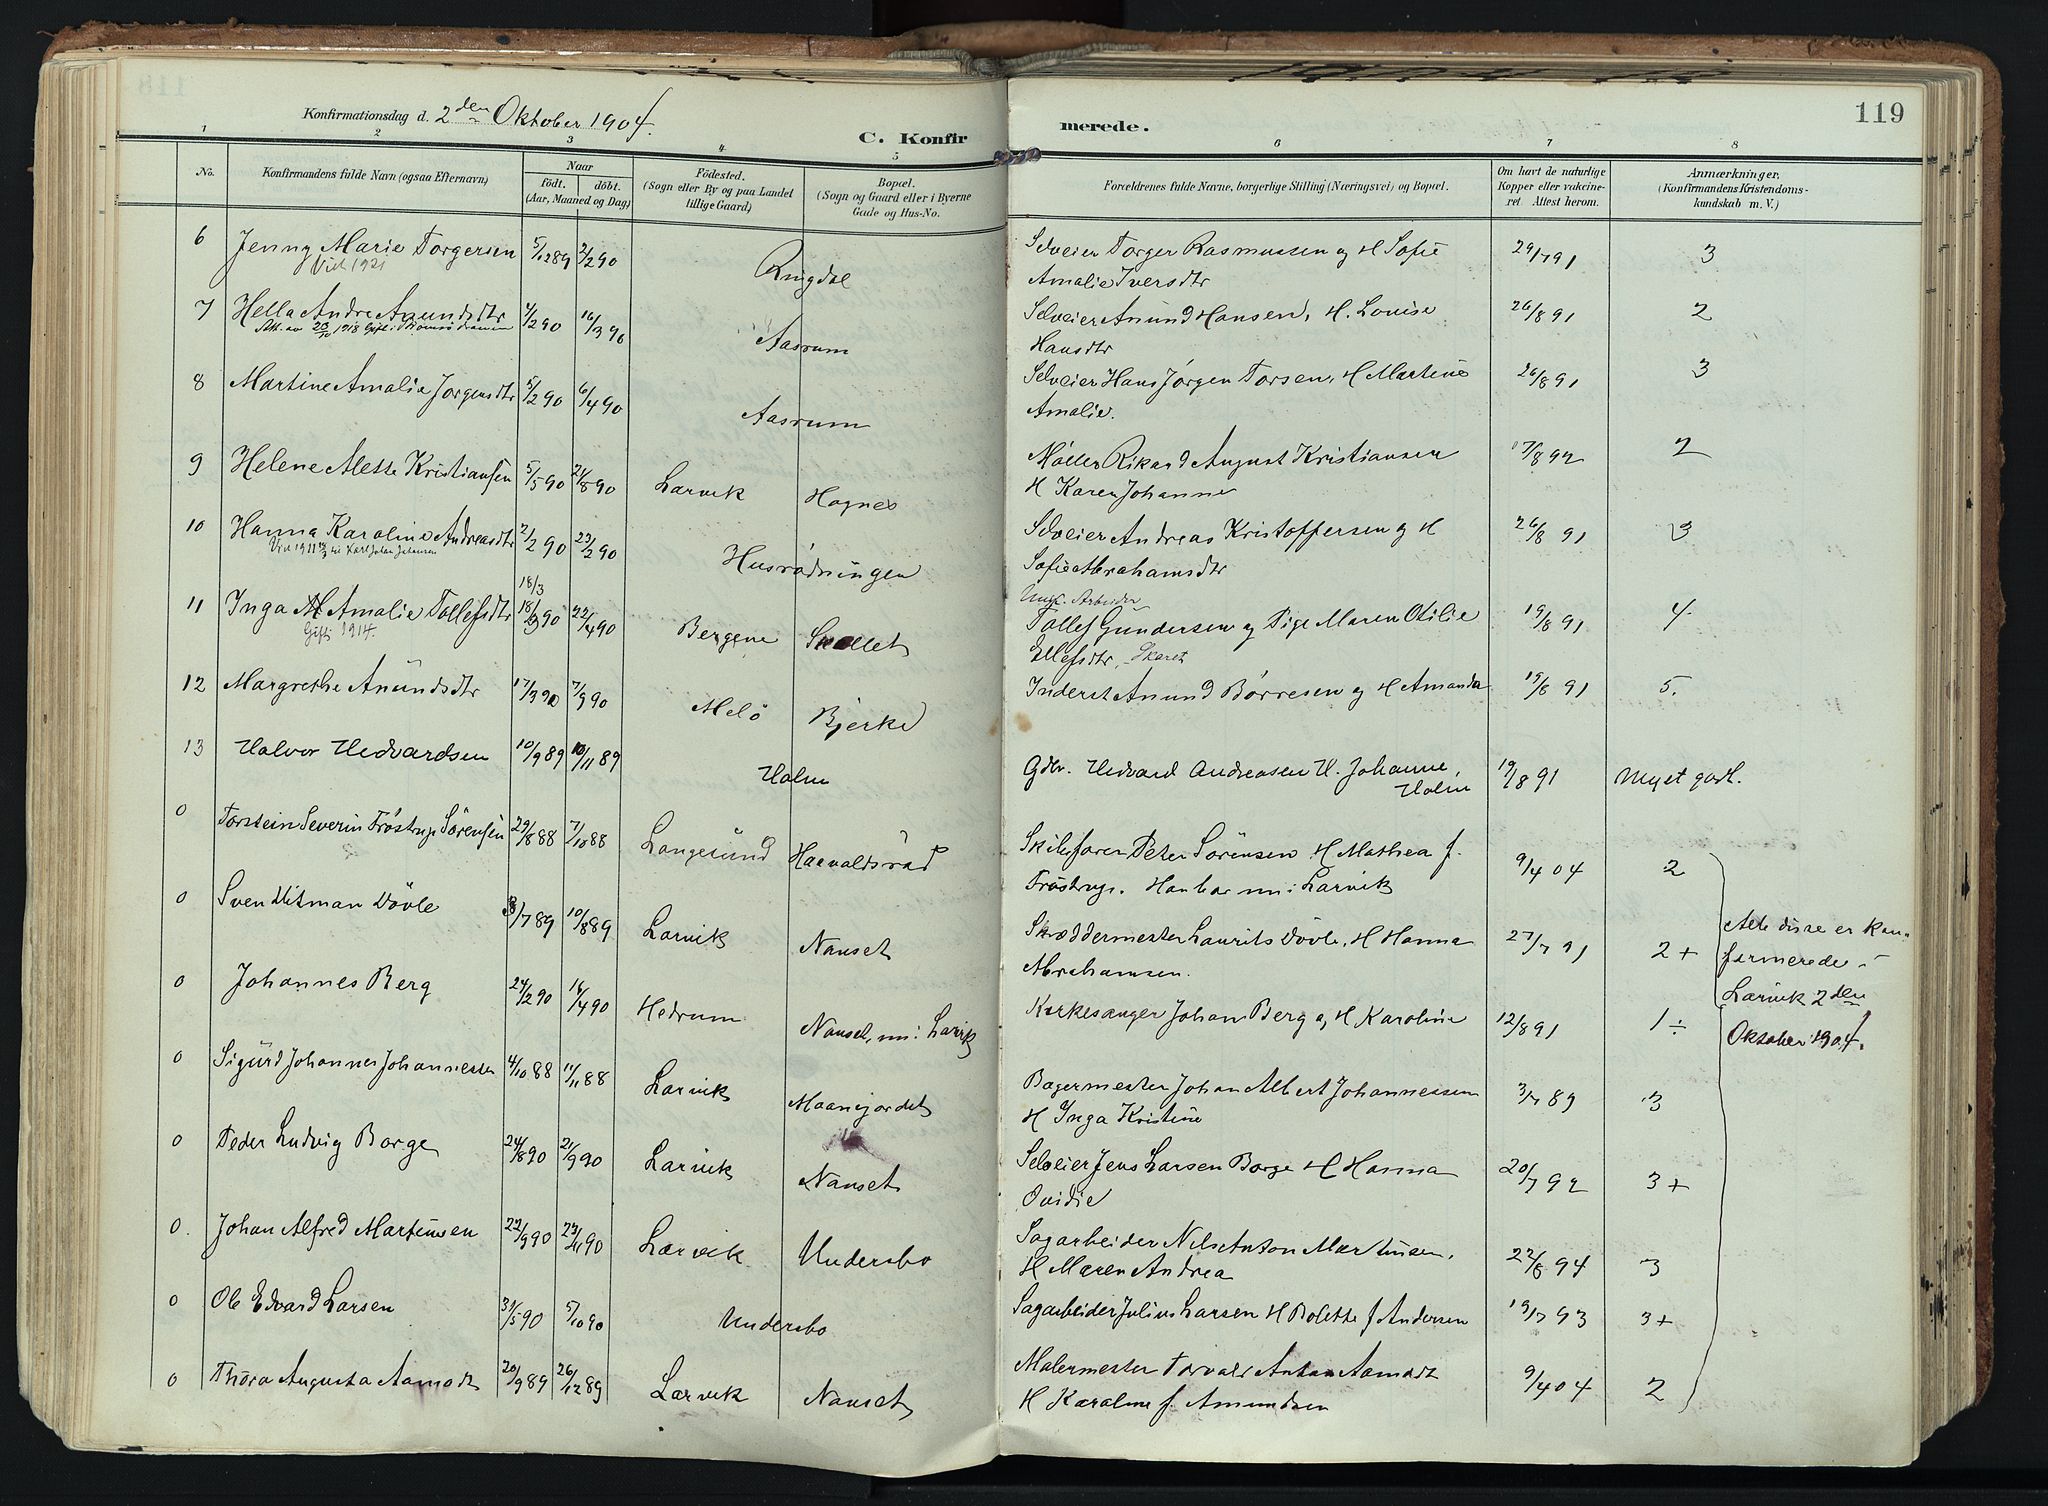 119
Konfirmationsdag d. 2den Oktober 1904.
C. Konfirmerede.
1 2 3 4 5 6 7 8
No. Konfirmandens fulde Navn (ogsaa Efternavn) Naar født. døbt. (Aar, Maaned og Dag) Fødested. (Sogn eller By og paa Landet tillige Gaard) Bopæl. (Sogn og Gaard eller i Byerne Gade og Hus-No. Forældrenes fulde Navne, borgerlige Stilling (Næringsvei) og Bopæl. Om havt de naturlige Kopper eller vakcineret. Attest herom. Anmærkninger, (Konfirmandens Kristendomskundskab m. V.)
6 Jenny Marie Torgersen 5/12 89 2/2 90 Ringdal Selveier Torger Rasmussen og H Sofie 29/7 91 3
Viet 1921 Amalie Iversdtr
7 Hella Andre Anundsdtr 4/2 90 16/3 90 Aasrum Selveier Anund Hansen, H. Louise 26/8 91 2
Att. av 23/10 1918 Gift i Tromsø Hansdtr
8 Martine Amalie Jørgensdtr 5/2 90 6/4 90 Aasrum Selveier Hans Jørgen Torsen, H Martine 26/8 91 3
Amalie.
9 Helene Alette Kristiansen 5/5 90 24/8 90 Larvik Hognes Møller Rikard August Kristiansen 17/8 92 2
H Karen Johanne
10 Hanna Karoline Andreasdtr 2/2 90 23/2 90 Husrødningen Selveier Andreas Kristoffersen og H 26/8 91 3
Viet 1911 til Karl Johan Johansen Sofie Abrahamsdtr
18/3 Ungk. Arbeider
11 Inga Amalie Tollefsdtr 18/3 90 22/4 90 Bergene Skallet Tollef Gundersen og Pige Maren Otilie 19/8 91 4
Gift 1914. Ellefsdtr, Skaret
12 Margrethe Anundsdtr 17/3 90 7/9 90 Melø Bjerke Inderst Anund Børresen og H Amanda 19/8 91 5.
13 Halvor Hedvardsen 10/9 89 10/11 89 Holm Gdbr. Hedvard Andreasen H. Johanne, Holm 19/8 91 Myet godt.
0 Torstein Severin Frøstrup Sørensen 29/8 88 7/10 88 Langesund Haavaldsrød Skibsfører Peter Sørensen H Mathea f. 9/4 04 2
Frøstrup. Han bor nu i Larvik
0 Sven Ditman Døvle 3/7 89 10/8 89 Larvik Nanset Skræddermester Laurits Døvle, H Hanna 27/7 91 2+
Abrahamsen.
Alle disse er konfirmerede i Larvik 2den Oktober 1904.
0 Johannes Berg 24/2 90 16/4 90 Hedrum Nanset, nu i Larvik Kirkesanger Johan Berg og H Karoline 12/8 91 1÷
0 Sigurd Johannes Johannessen 4/10 88 11/11 88 Larvik Maanejordet Bagermester Johan Albert Johannessen 3/7 89 3
H Inga Kristine
0 Peder Ludvig Borge 24/8 90 21/9 90 Larvik Nanset Selveier Jens Larsen Borge H Hanna 20/7 92 3+
Ovidie
0. Johan Alfred Martinsen 22/9 90 23/11 90 Larvik Undersbo Sagarbeider Nils Anton Martinsen, 22/8 94 3
H Maren Andrea
0 Ole Edvard Larsen 31/5 90 5/10 90 Undersbo Sagarbeider Julius Larsen H Bolette f Andersen 19/7 93 3+
0 Thora Augusta Aamodt 20/9 89 26/12 89 Larvik Nanset Malermester Torvald Anton Aamodt 9/4 04 2
H Karoline f. Amundsen